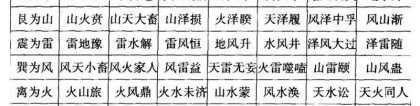 艮为山 山火贲 山天大畜 山泽损 火泽睽 天泽履 风泽中孚 风山渐
震为雷 雷地豫 雷水解 雷风恒 地风升 水风井 泽风大过 泽雷随
巽为风 风天小畜 风火家人 风雷益 天雷无妄 火雷噬嗑 山雷颐 山风蛊
离为火 火山旅 火风鼎 火水未济 山水蒙 风水涣 天水讼 天火同人